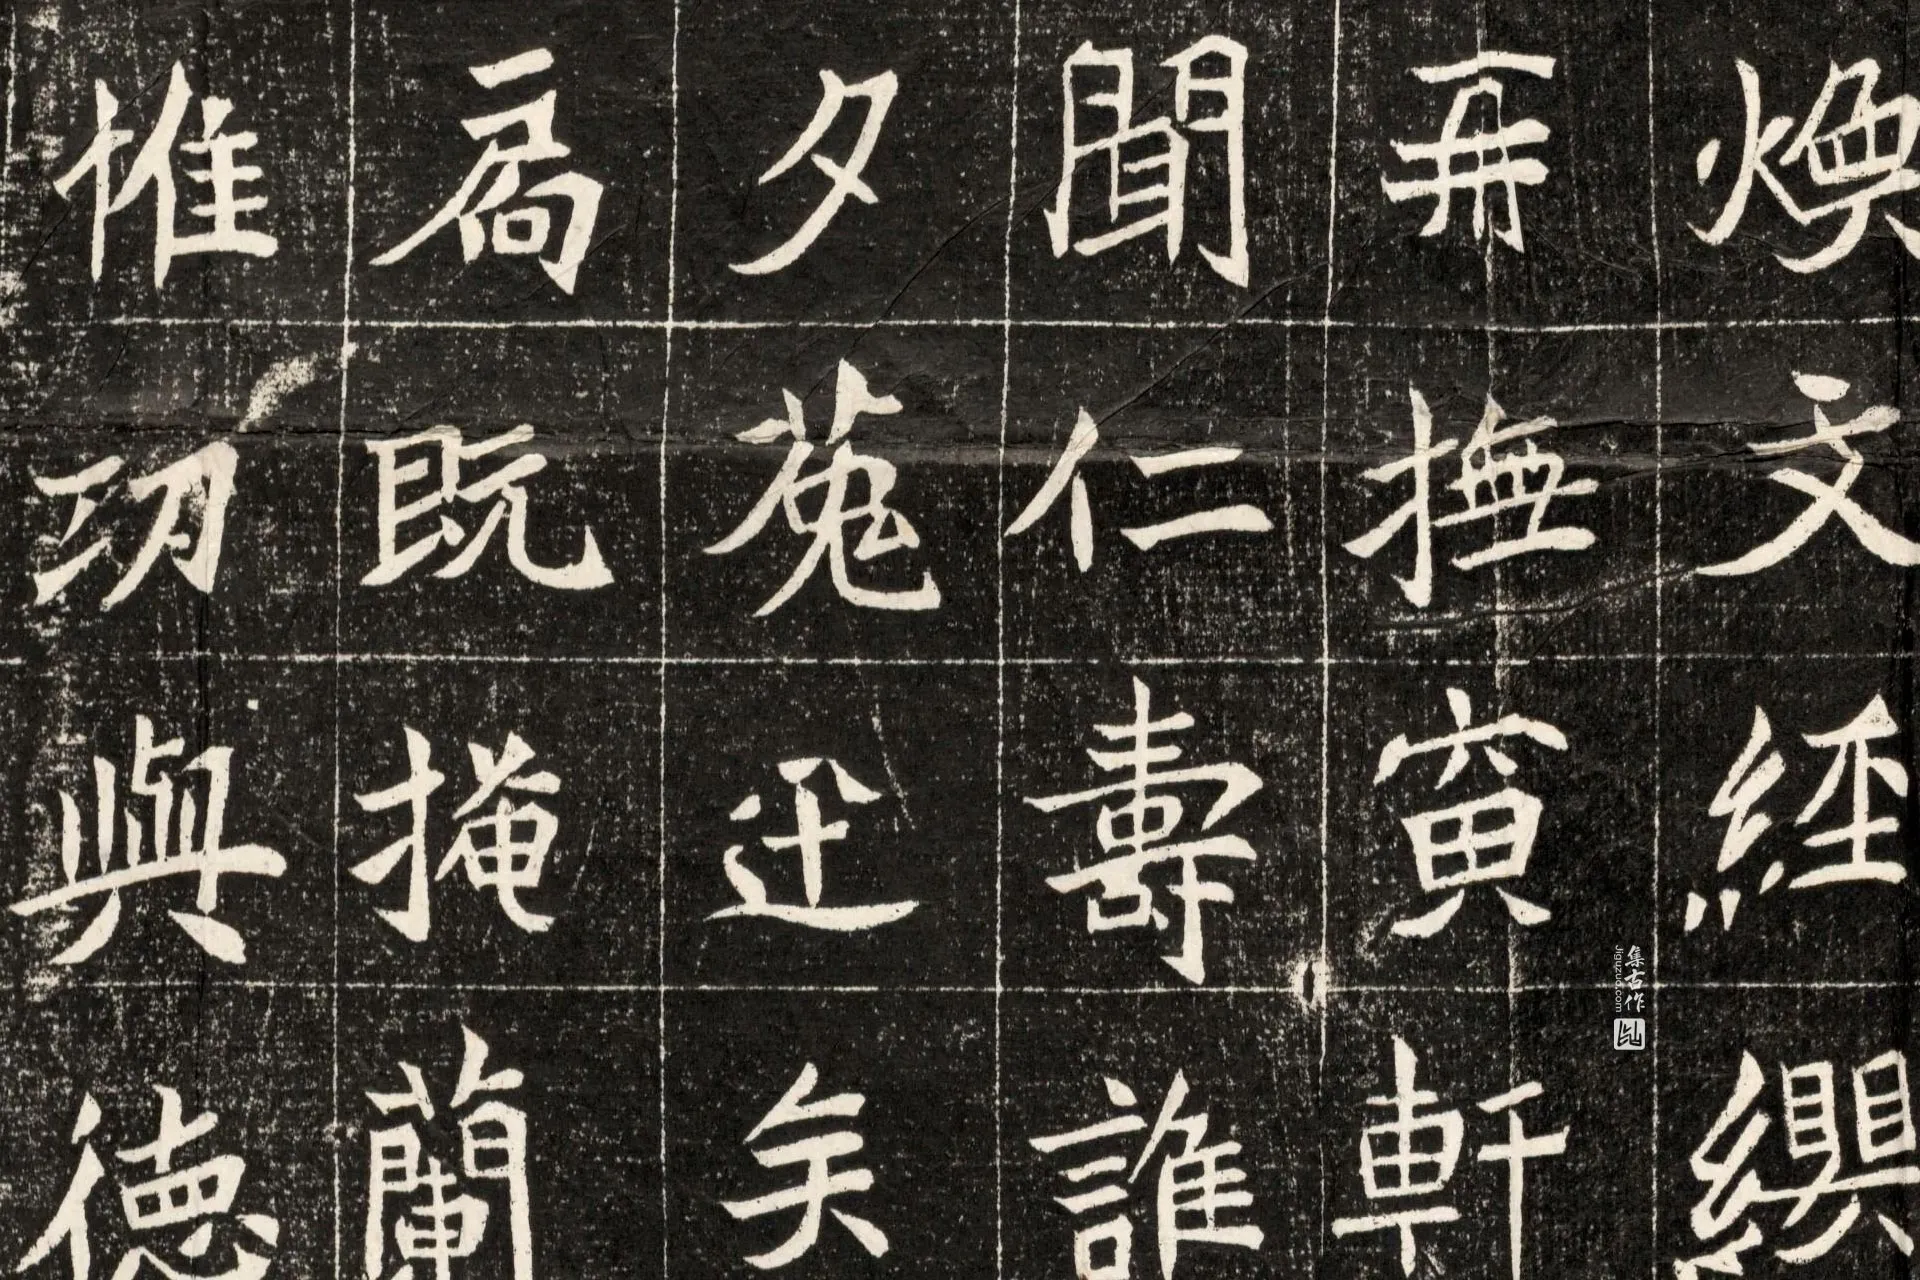 煥文經纓
再撫寅軒
聞仁壽誰
夕菟矣
扃既掩蘭
惟功與德
集古作
Jiguzuo.com